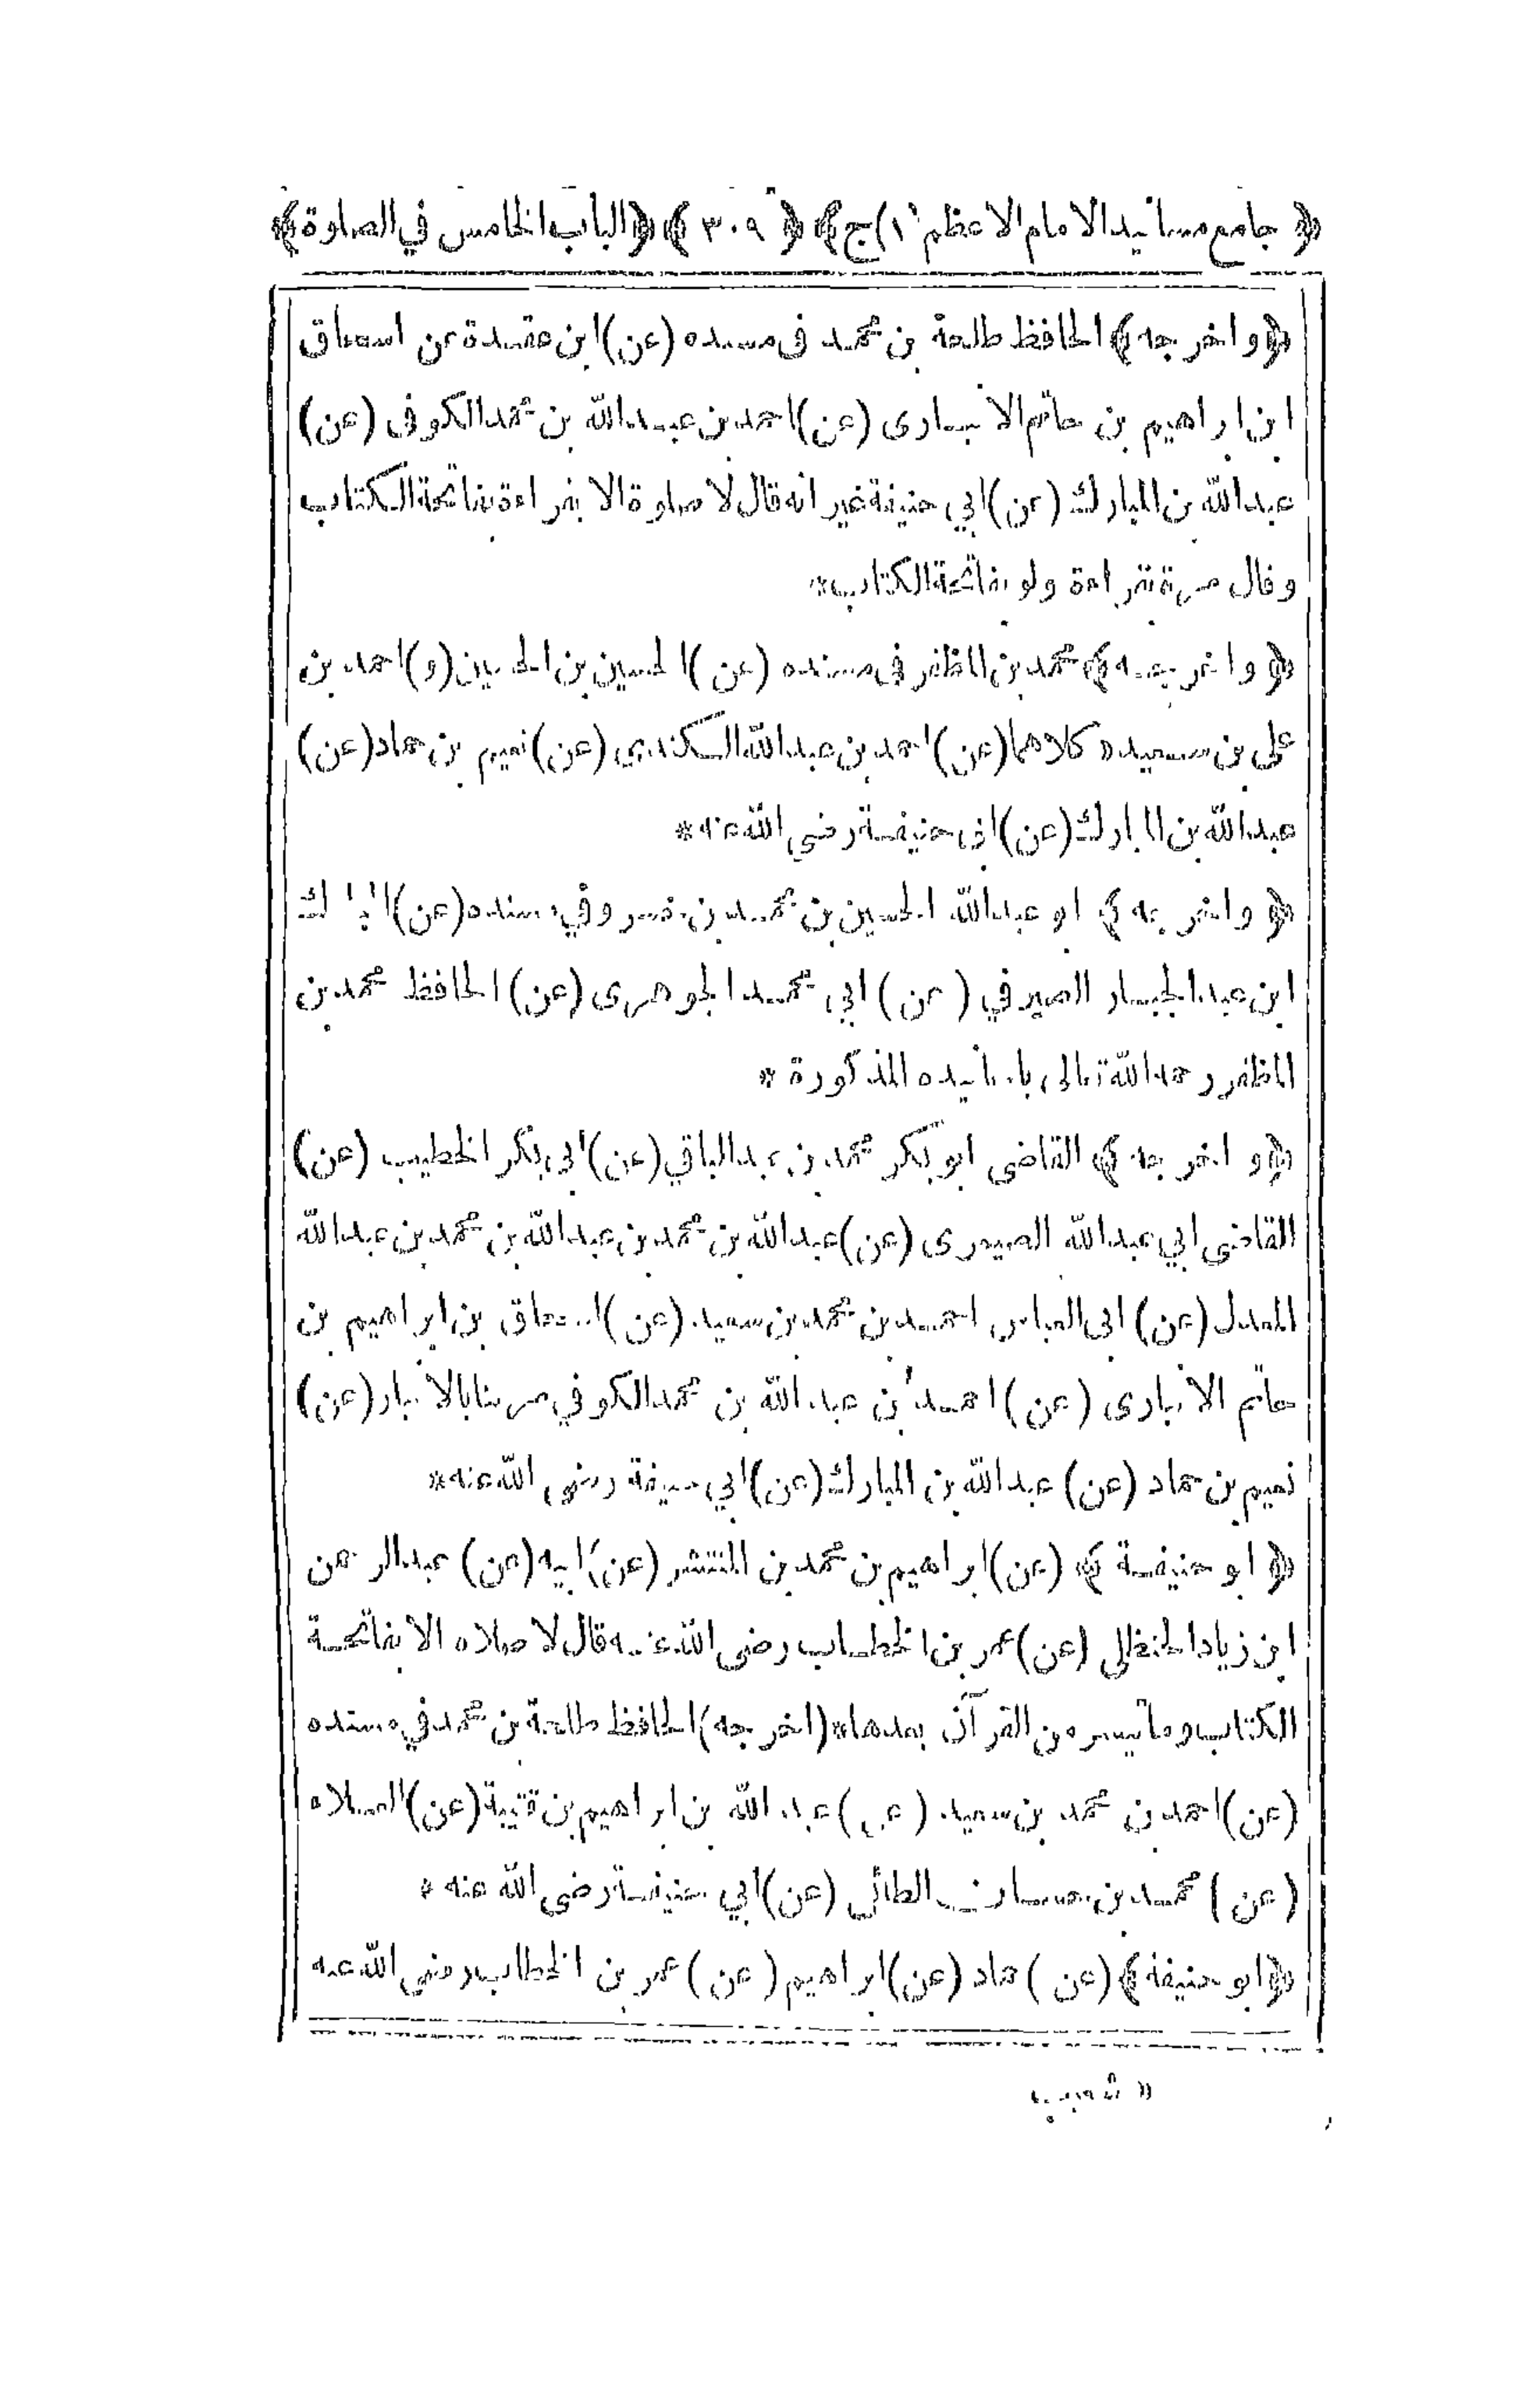 ﴿ جامع مسانيد الامام الاعظم ١) ج﴾ ﴿ ٣٠٩ ﴾ ﴿الباب الخامس في الصلوة﴾
﴿و اخرجه﴾ الحافظ طلحة بن محمد فى مسنده (عن) ابن عقدة عن اسحاق
ابن ابراهيم بن حاتم الانبارى (عن) احمد بن عبد الله بن محمد الكوفى (عن)
عبد الله بن المبارك (عن) ابي حنيفة غير انه قال لا صلوة الا بقراءة بفاتحة الكتاب
وقال مرة بقراءة ولو بفاتحة الكتاب*
﴿ واخرجه﴾ محمد بن المظفر فى مسنده (عن) الحسين بن الحسين (و) احمد بن
على بن كلاهما (عن) احمد بن عبد الله الكندى (عن) نعيم بن حماد (عن)
عبد الله بن المبارك (عن) ابى حنيفة رضى الله عنه *
﴿ واخرجه ﴾ ابو عبد الله الحسين بن محمد بن خسرو في مسنده (عن) المبارك
ابن عبد الجبار الصيرفي ( عن ) ابي محمد الجوهرى (عن) الحافظ محمد بن
المظفر رحمه الله تعالى باسانيده المذكورة *
﴿و اخرجه ﴾ القاضى ابو بكر محمد بن عبد الباقي (عن) ابى بكر الخطيب (عن)
القاضى ابي عبد الله الصيمرى (عن) عبد الله بن محمد بن عبد الله بن محمد بن عبد الله
المعدل (عن) ابى العباس احمد بن محمد بن سعيد (عن) اسحاق بن ابراهيم بن
حاتم الانبارى (عن) احمد بن عبد الله بن محمد الكوفي مر بنا بالانبار (عن)
نعيم بن حماد (عن) عبد الله بن المبارك (عن) ابي حنيفة رضى الله عنه *
﴿ ابو حنيفة ﴾ (عن) ابراهيم بن محمد بن المنتشر (عن) ابيه (عن) عبد الرحمن
ابن زياد الحنظلى (عن) عمر بن الخطاب رضى الله عنه قال لا صلاه الا بفاتحة
الكتاب وما تيسر من القرآن بعدها * (اخرجه) الحافظ طلحة بن محمد في مسنده
(عن) احمد بن محمد بن سعيد (عن) عبد الله بن ابراهيم بن قتيبة (عن)
( عن ) محمد بن الطائى (عن) ابي حنيفة رضى الله عنه *
﴿ ابو حنيفة ﴾ ( عن ) حماد (عن) ابراهيم ( عن ) عمر بن الخطاب رضى الله عنه